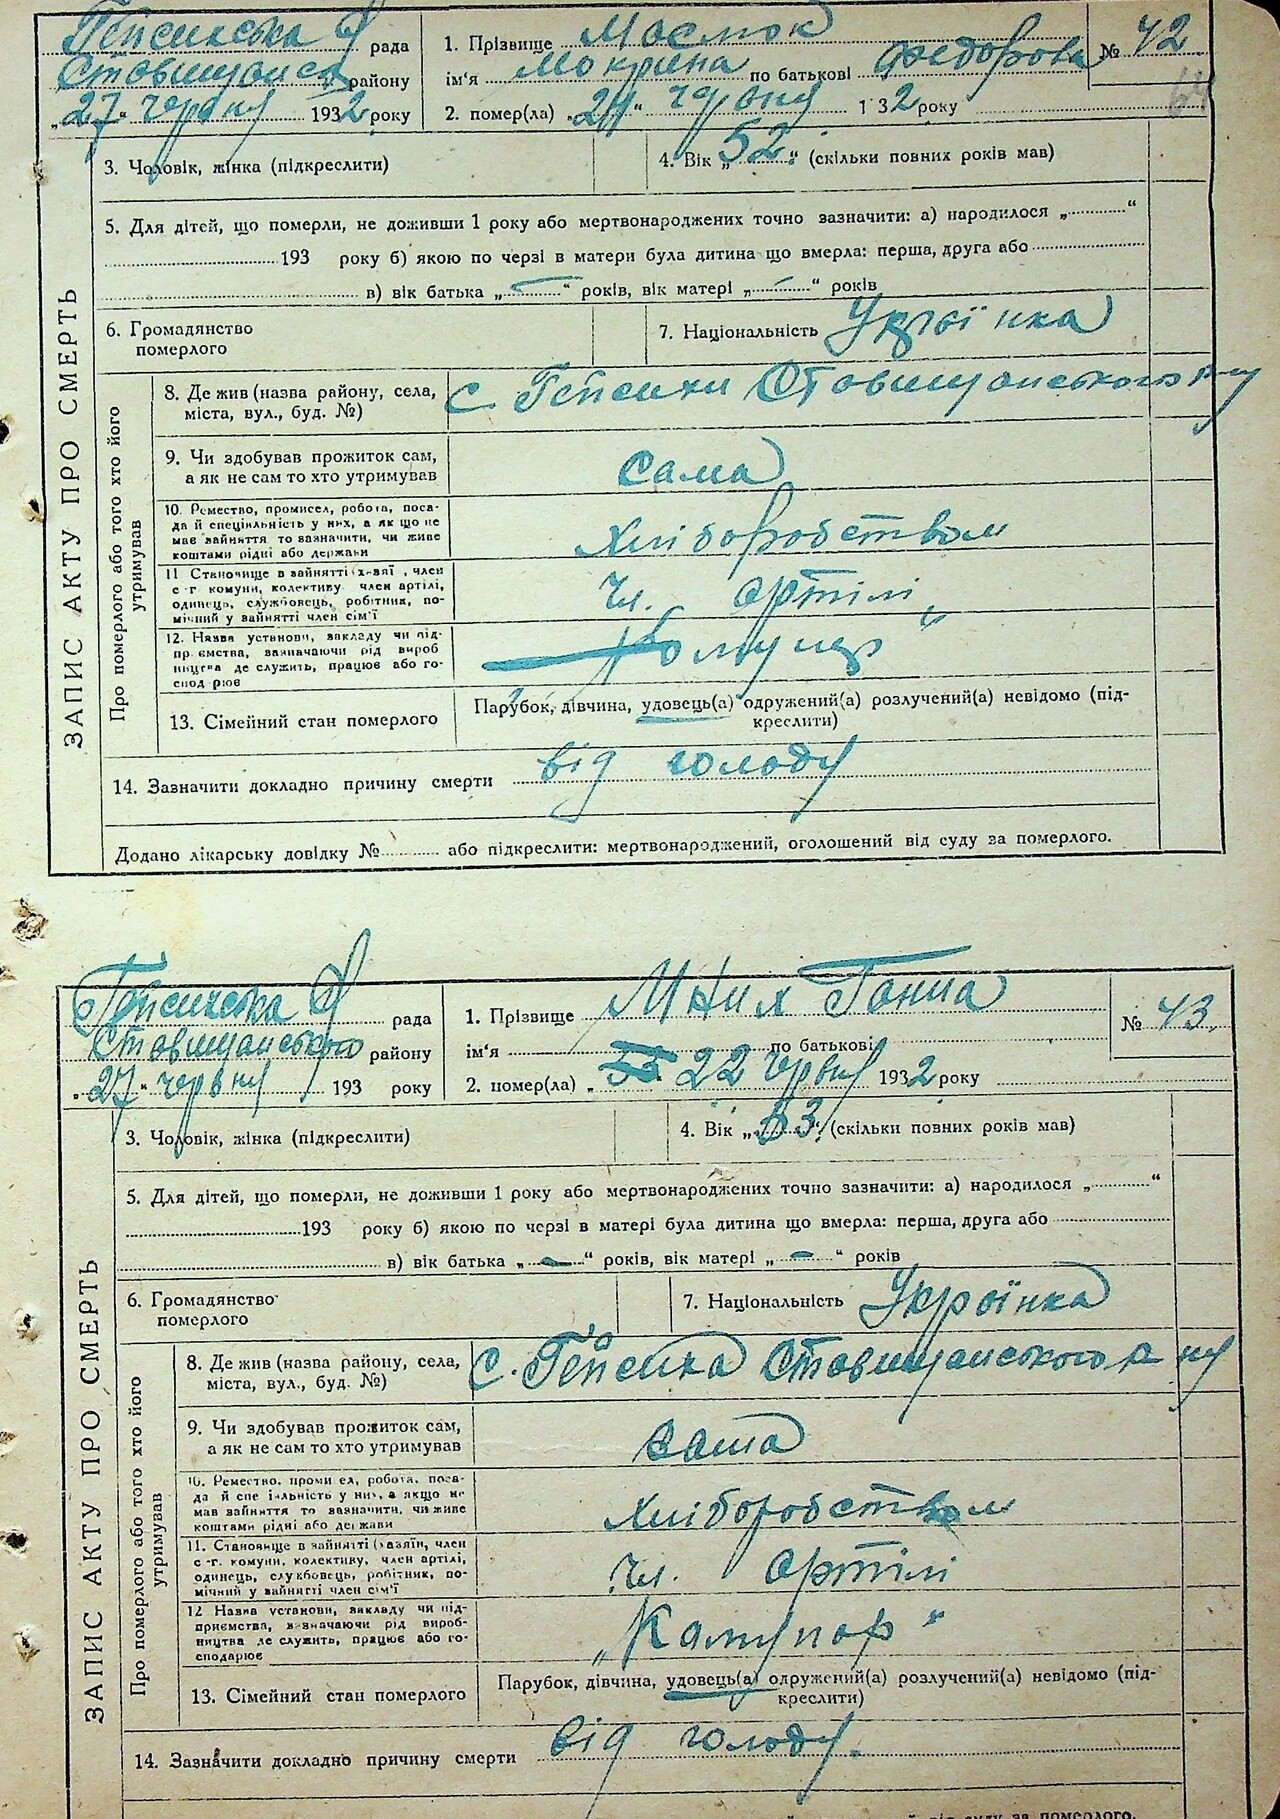 Гейсиська рада
Ставищанськ району
„27" червня 1932 року
1. Прізвище Маслюк
ім'я Мокрина по батькові Федорова
2. помер(ла) „ " червня 1 32 року
№ 42
64
3. Чоловік, жінка (підкреслити)
4. Вік „52." (скільки повних років мав)
5. Для дітей, що померли, не доживши 1 року або мертвонароджених точно зазначити: а) народилося „ "
193 року б) якою по черзі в матери була дитина що вмерла: перша, друга або
в) вік батька „–" років, вік матері „–" років
6. Громадянство
померлого
7. Національність Українка
ЗАПИС АКТУ ПРО СМЕРТЬ
Про померлого або того хто його
утримував
8. Де жив (назва району, села,
міста, вул., буд. №)
с. Гейсихи Ставищанського р-ну
9. Чи здобував прожиток сам,
а як не сам то хто утримував
сама
10. Ремество, промисел, робота, поса-
да й спеціяльність у них, а як що не
має зайняття то зазначити, чи живе
коштами рідні або держави
Хліборобством
11 Становище в зайнятті (х-вяї , член
с-г комуни, колективу член артілі,
одинець, службовець, робітник, по-
мічний у зайнятті член сім'ї
чл. артілі
12. Назва установи, закладу чи під-
пр ємства, зазначаючи рід вироб
ництва де служить, працює або го-
спод рює
13. Сімейний стан померлого
Парубок, дівчина, удовець(а) одружений(а) розлучений(а) невідомо (під-
креслити)
14. Зазначити докладно причину смерти від голоду
Додано лікарську довідку № або підкреслити: мертвонароджений, оголошений від суду за померлого.
Гейсиська рада
Ставищанського району
„27" червня 193 року
1. Прізвище Мних Ганна
ім'я по батькові
2. помер(ла) „ " 22 червня 1932 року
№ 43.
3. Чоловік, жінка (підкреслити)
4. Вік „53" (скільки повних років мав)
5. Для дітей, що померли, не доживши 1 року або мертвонароджених точно зазначити: а) народилося „ "
193 року б) якою по черзі в матері була дитина що вмерла: перша, друга або
в) вік батька „–" років, вік матері „–" років
6. Громадянство
померлого
7. Національність Українка
ЗАПИС АКТУ ПРО СМЕРТЬ
Про померлого або того хто його
утримував
8. Де жив (назва району, села,
міста, вул., буд. №)
с. Гейсиха Ставищанського р ну
9. Чи здобував прожиток сам,
а як не сам то хто утримував
сама
10. Ремество, проми ел, робота, поса-
да й спе іяльність у них, а якщо не
мав зайняття то зазначити, чи живе
коштами рідні або держави
Хліборобством
11. Становище в зайнятті (хазяїн, член
с-г. комуни, колективу, член артілі,
одинець, службовець, робітник, по-
мічний у зайнятті член сім'ї
чл. артілі
12 Назва установи, закладу чи під-
приємства, зазначаючи рід вироб-
ництва де служить, працює або го-
сподарює
13. Сімейний стан померлого
Парубок, дівчина, удовець(а) одружений(а) розлучений(а) невідомо (під-
креслити)
14. Зазначити докладно причину смерти від голоду.
від суду за померлого.